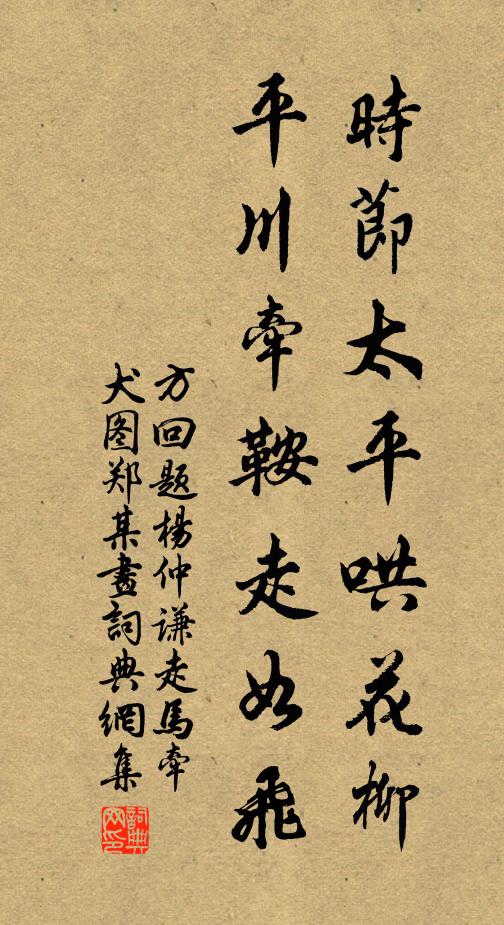 時節太平哄花柳
平川牽鞍走如飛
方回题楊仲谦走馬牽
犬图郑某畫詞典網集
詞典网印